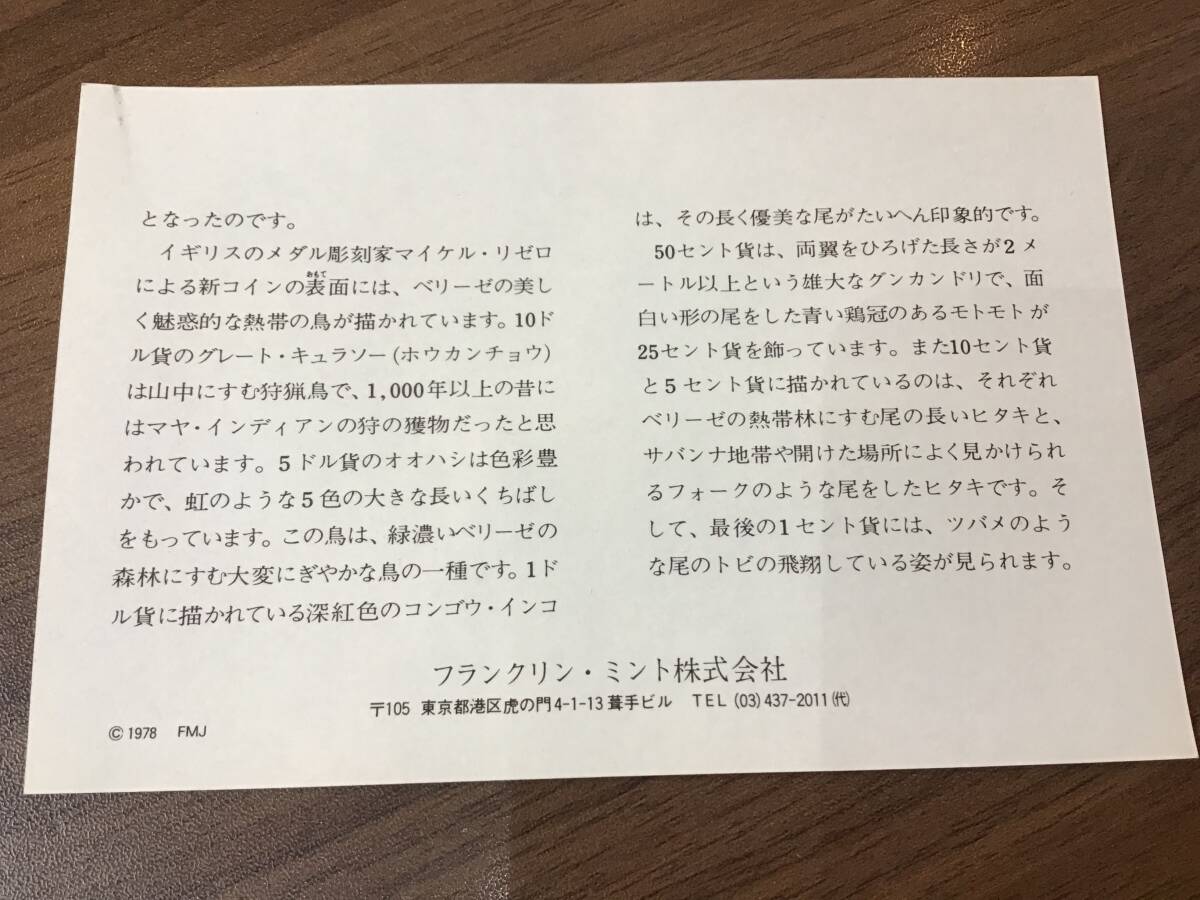 となったのです。
イギリスのメダル彫刻家マイケル・リゼロ
による新コインの表面には、ベリーゼの美し
おもて
く魅惑的な熱帯の鳥が描かれています。10ド
ル貨のグレート・キュラソー(ホウカンチョウ)
は山中にすむ狩猟鳥で、1,000年以上の昔に
はマヤ・インディアンの狩の獲物だったと思
われています。5ドル貨のオオハシは色彩豊
かで、虹のような5色の大きな長いくちばし
をもっています。この鳥は、緑濃いベリーゼの
森林にすむ大変にぎやかな鳥の一種です。1ド
ル貨に描かれている深紅色のコンゴウ・インコ
は、その長く優美な尾がたいへん印象的です。
50セント貨は、両翼をひろげた長さが2メ
ートル以上という雄大なグンカンドリで、面
白い形の尾をした青い鶏冠のあるモトモトが
25セント貨を飾っています。また10セント貨
と5セント貨に描かれているのは、それぞれ
ベリーゼの熱帯林にすむ尾の長いヒタキと、
サバンナ地帯や開けた場所によく見かけられ
るフォークのような尾をしたヒタキです。そ
して、最後の1セント貨には、ツバメのよう
な尾のトビの飛翔している姿が見られます。
フランクリン・ミント株式会社
〒105 東京都港区虎の門4-1-13葺手ビル TEL (03)437-2011㈹
© 1978 FMJ